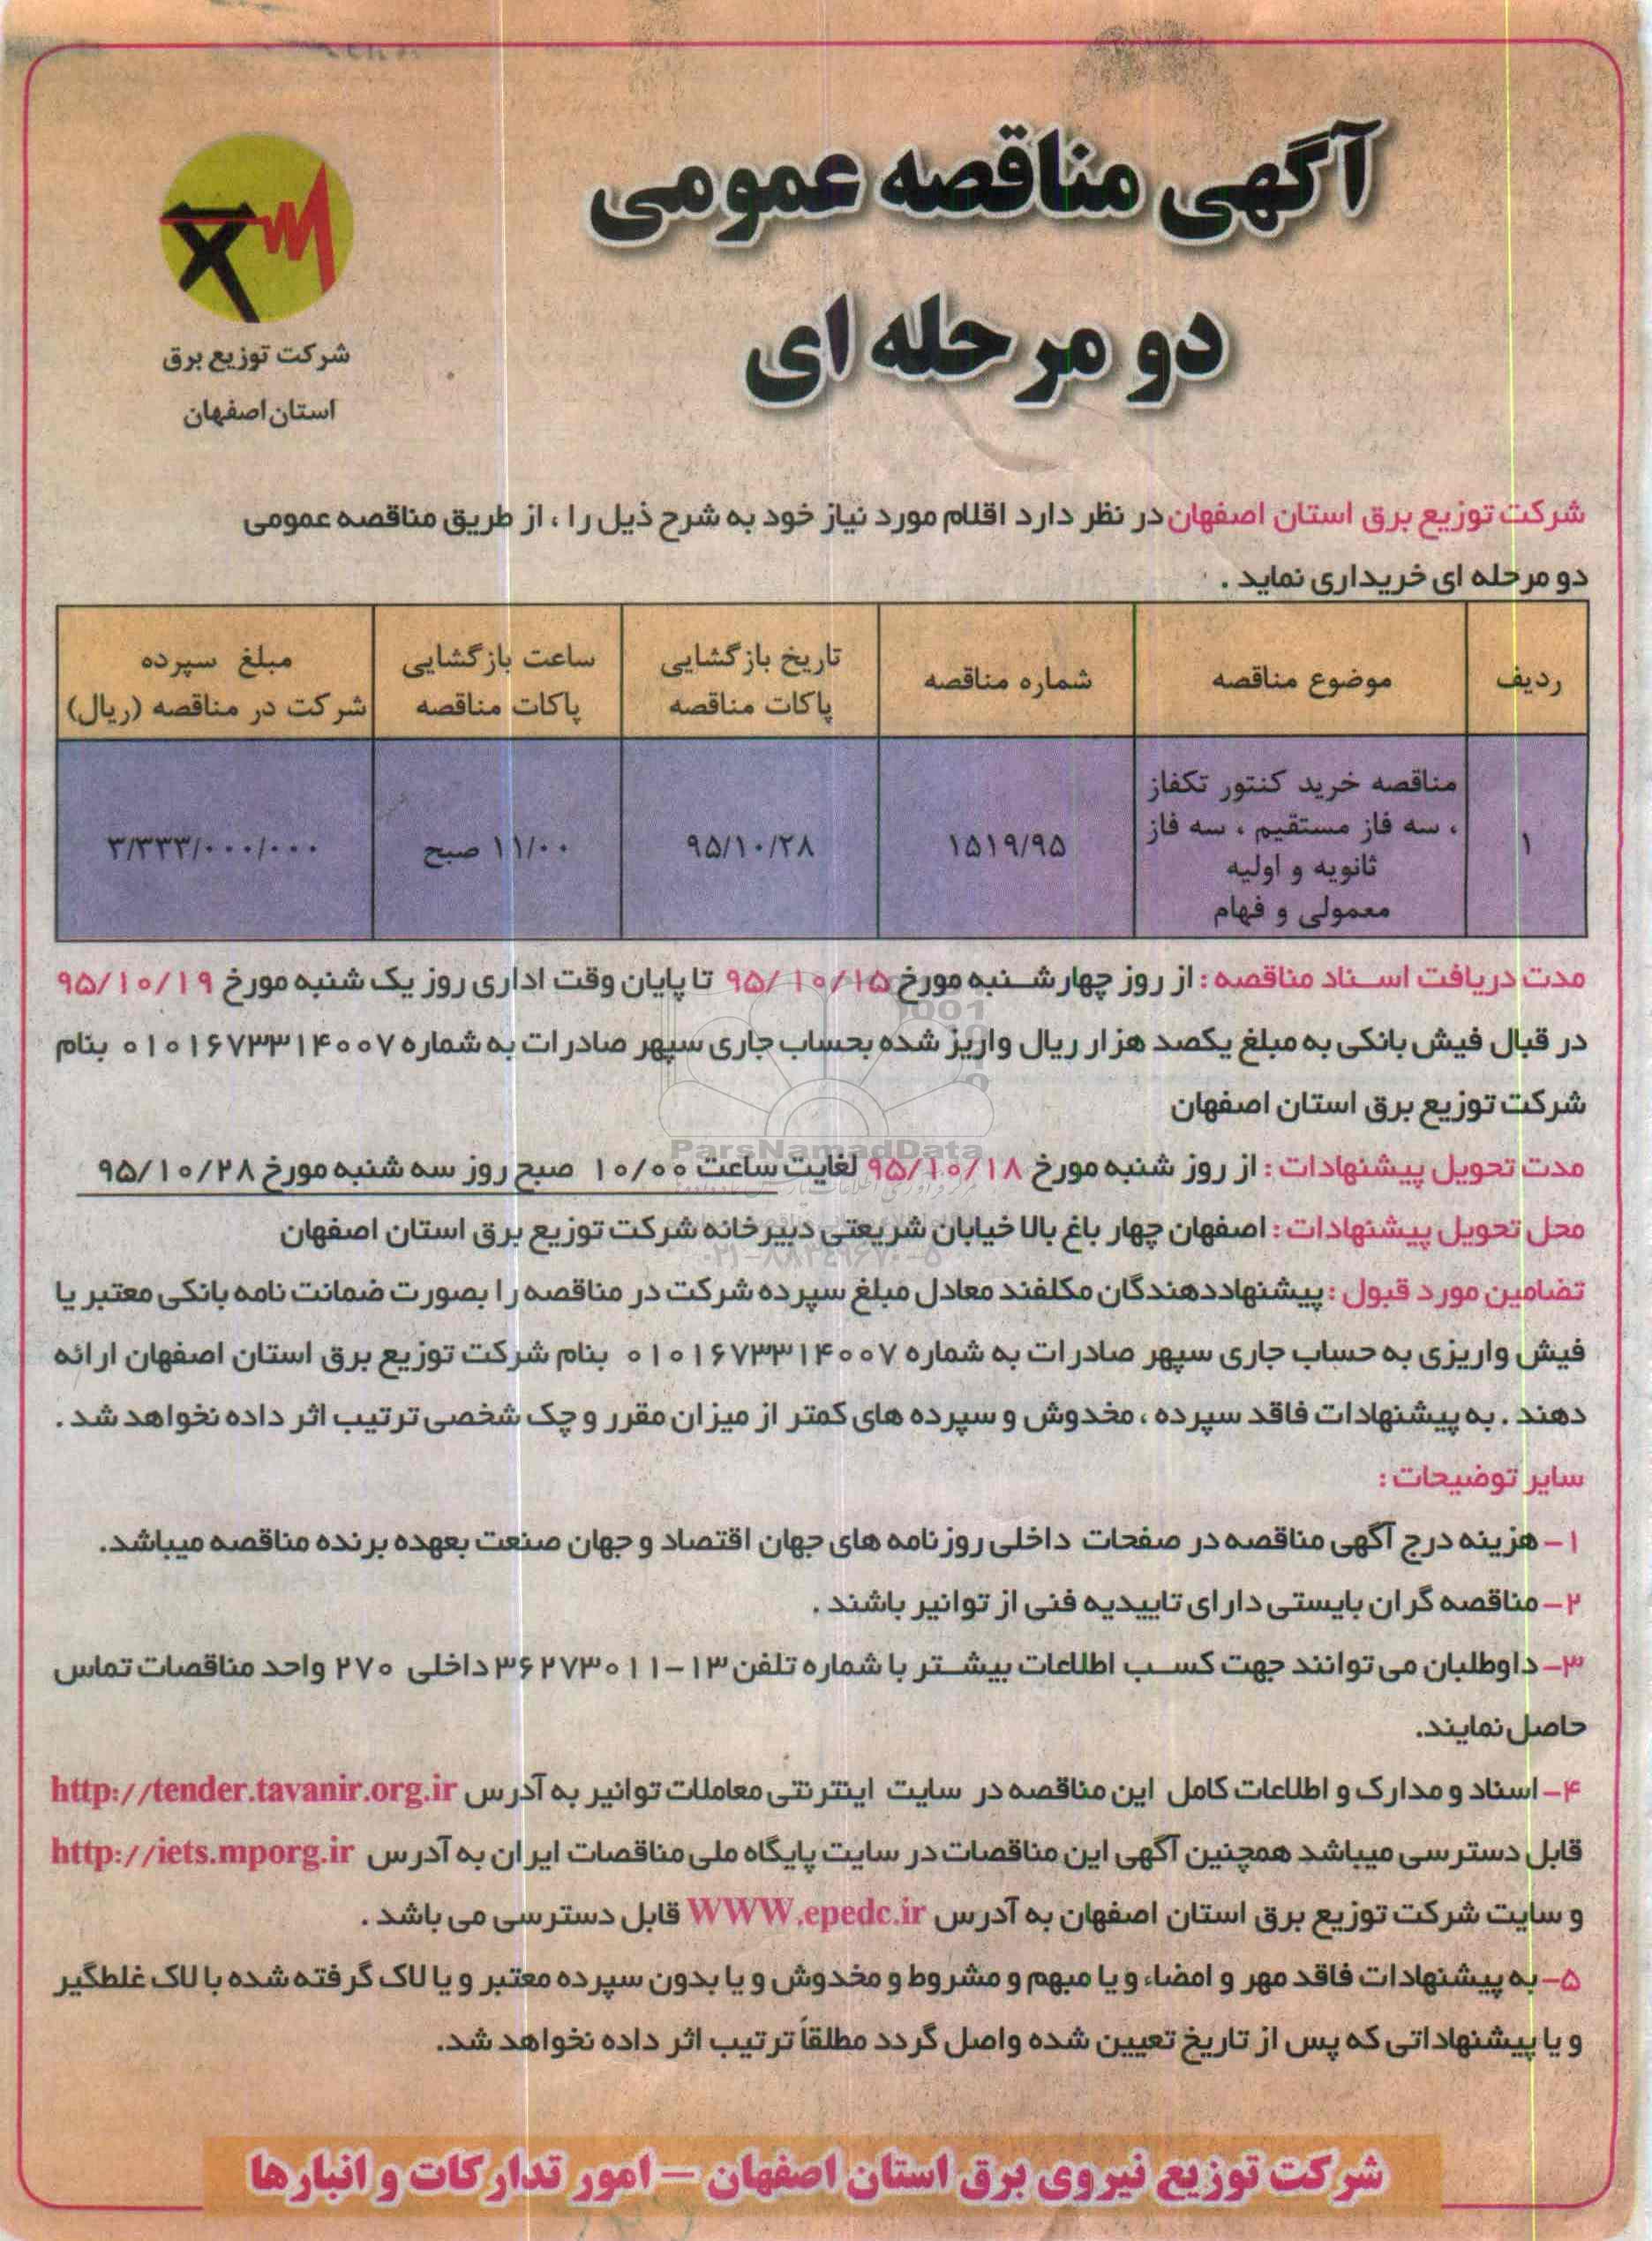 آگهی مناقصه عمومی
دو مرحله ای
شرکت توزیع برق
استان اصفهان
شرکت توزیع برق استان اصفهان در نظر دارد اقلام مورد نیاز خود به شرح ذیل را ، از طریق مناقصه عمومی
دو مرحله ای خریداری نماید .
ردیف
موضوع مناقصه
شماره مناقصه
تاریخ بازگشایی
پاکات مناقصه
ساعت بازگشایی
پاکات مناقصه
مبلغ سپرده
شرکت در مناقصه (ریال)
۱
مناقصه خرید کنتور تکفاز
، سه فاز مستقیم ، سه فاز
ثانویه و اولیه
معمولی و فهام
۱۵۱۹/۹۵
۹۵/۱۰/۲۸
۱۱/۰۰ صبح
۳/۳۳۳/۰۰۰/۰۰۰
مدت دریافت اسناد مناقصه : از روز چهارشنبه مورخ ۹۵/۱۰/۱۵ تا پایان وقت اداری روز یک شنبه مورخ ۹۵/۱۰/۱۹
در قبال فیش بانکی به مبلغ یکصد هزار ریال واریز شده بحساب جاری سپهر صادرات به شماره ۰۱۰۱۶۷۳۳۱۴۰۰۷ بنام
شرکت توزیع برق استان اصفهان
مدت تحویل پیشنهادات : از روز شنبه مورخ ۹۵/۱۰/۱۸ لغایت ساعت ۱۰/۰۰ صبح روز سه شنبه مورخ ۹۵/۱۰/۲۸
محل تحویل پیشنهادات : اصفهان چهار باغ بالا خیابان شریعتی دبیرخانه شرکت توزیع برق استان اصفهان
تضامین مورد قبول : پیشنهاددهندگان مکلفند معادل مبلغ سپرده شرکت در مناقصه را بصورت ضمانت نامه بانکی معتبر یا
فیش واریزی به حساب جاری سپهر صادرات به شماره ۰۱۰۱۶۷۳۳۱۴۰۰۷ بنام شرکت توزیع برق استان اصفهان ارائه
دهند . به پیشنهادات فاقد سپرده ، مخدوش و سپرده های کمتر از میزان مقرر و چک شخصی ترتیب اثر داده نخواهد شد .
سایر توضیحات :
۱- هزینه درج آگهی مناقصه در صفحات داخلی روزنامه های جهان اقتصاد و جهان صنعت بعهده برنده مناقصه میباشد.
۲- مناقصه گران بایستی دارای تاییدیه فنی از توانیر باشند .
۳- داوطلبان می توانند جهت کسب اطلاعات بیشتر با شماره تلفن ۱۳-۳۶۲۷۳۰۱۱ داخلی ۲۷۰ واحد مناقصات تماس
حاصل نمایند.
۴- اسناد و مدارک و اطلاعات کامل این مناقصه در سایت اینترنتی معاملات توانیر به آدرس http://tender.tavanir.org.ir
قابل دسترسی میباشد همچنین آگهی این مناقصات در سایت پایگاه ملی مناقصات ایران به آدرس http://iets.mporg.ir
و سایت شرکت توزیع برق استان اصفهان به آدرس WWW.epedc.ir قابل دسترسی می باشد .
۵- به پیشنهادات فاقد مهر و امضاء و یا مبهم و مشروط و مخدوش و یا بدون سپرده معتبر و یا لاک گرفته شده با لاک غلطگیر
و یا پیشنهاداتی که پس از تاریخ تعیین شده واصل گردد مطلقاً ترتیب اثر داده نخواهد شد.
شرکت توزیع نیروی برق استان اصفهان – امور تدارکات و انبارها
ParsNamadData